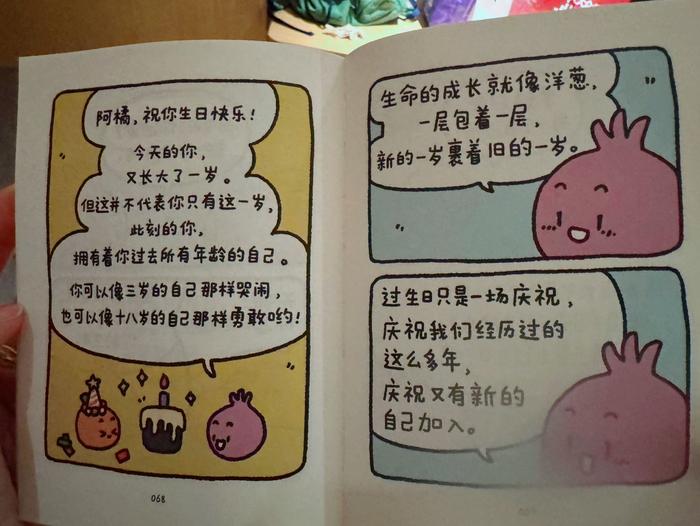 阿橘，祝你生日快乐！
今天的你，
又长大了一岁。
但这并不代表你只有这一岁，
此刻的你，
拥有着你过去所有年龄的自己。
你可以像三岁的自己那样哭闹，
也可以像十八岁的自己那样勇敢哟！
068
生命的成长就像洋葱，
一层包着一层，
新的一岁裹着旧的一岁。
过生日只是一场庆祝，
庆祝我们经历过的
这么多年，
庆祝又有新的
自己加入。